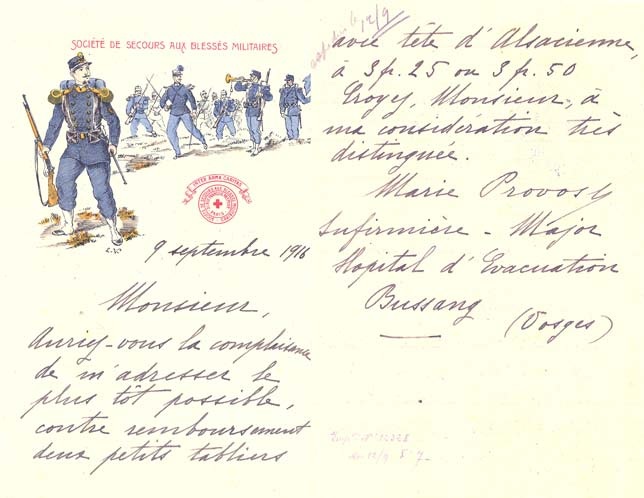 SOCIÉTÉ DE SECOURS AUX BLESSÉS MILITAIRES
INTER ARMA CARITAS
9 septembre 1916
Monsieur,
Auriez-vous la complaisance
de m'adresser le
plus tôt possible,
contre remboursement
deux petits tabliers
12/9
avec tête d'Alsacienne,
à 3 fr. 25 ou 3 fr. 50
Croyez, Monsieur, à
ma considération très
distinguée.
Marie Provost
Infirmière - Major
Hopital d'Evacuation
Bussang
(Vosges)
12/9